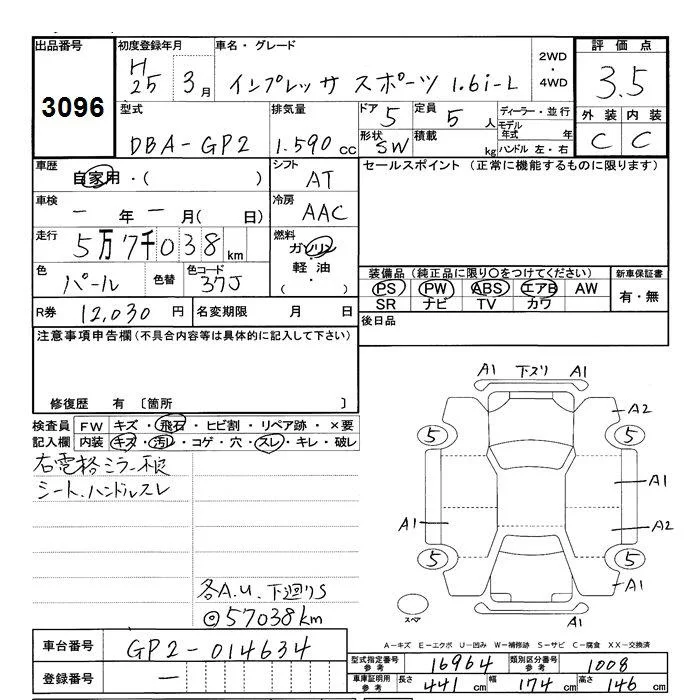 出品番号 初度登録年月 車名・グレード 2WD・4WD 評価点
3096 H25 3月 インプレッサ スポーツ 1.6i-L 3.5
型式 排気量 ドア 5 定員 5人 ディーラー・並行 外装 内装
DBA-GP2 1.590cc 形状 SW 積載 kg モデル年式 年 C C
ハンドル 左・右
車歴 自家用・( ) シフト AT セールスポイント (正常に機能するものに限ります)
車検 一年一月( 日) 冷房 AAC
走行 5万7千038km 燃料 ガソリン
軽油
( ・ )
色 パール 色替 色コード 37J 装備品(純正品に限り○をつけてください) 新車保証書
PS PW ABS エアB AW 有・無
SR ナビ TV カワ
R券 12,030円 名変期限 月 日 後日品
注意事項申告欄(不具合内容等は具体的に記入して下さい)
修復歴 有 〔箇所 〕
検査員 FW キズ・飛石・ヒビ割・リペア跡・×要
記入欄 内装 キズ・汚レ・コゲ・穴・スレ・キレ・破レ
右電格ミラー不良
シート.ハンドルスレ
各A.U.下廻りS
◎57038km
A1 下スリ A1
A2
5 5
A1
A1 A2
5 5
A1
スペア A1
A-キズ E-エクボ U-凹み W-補修跡 S-サビ C-腐食 XX-交換済
車台番号 GP2-014634
型式指定番号 参考 16964 類別区分番号 参考 1008
登録番号 ―
車庫証明用 参考 長さ 441cm 幅 174cm 高さ 146cm